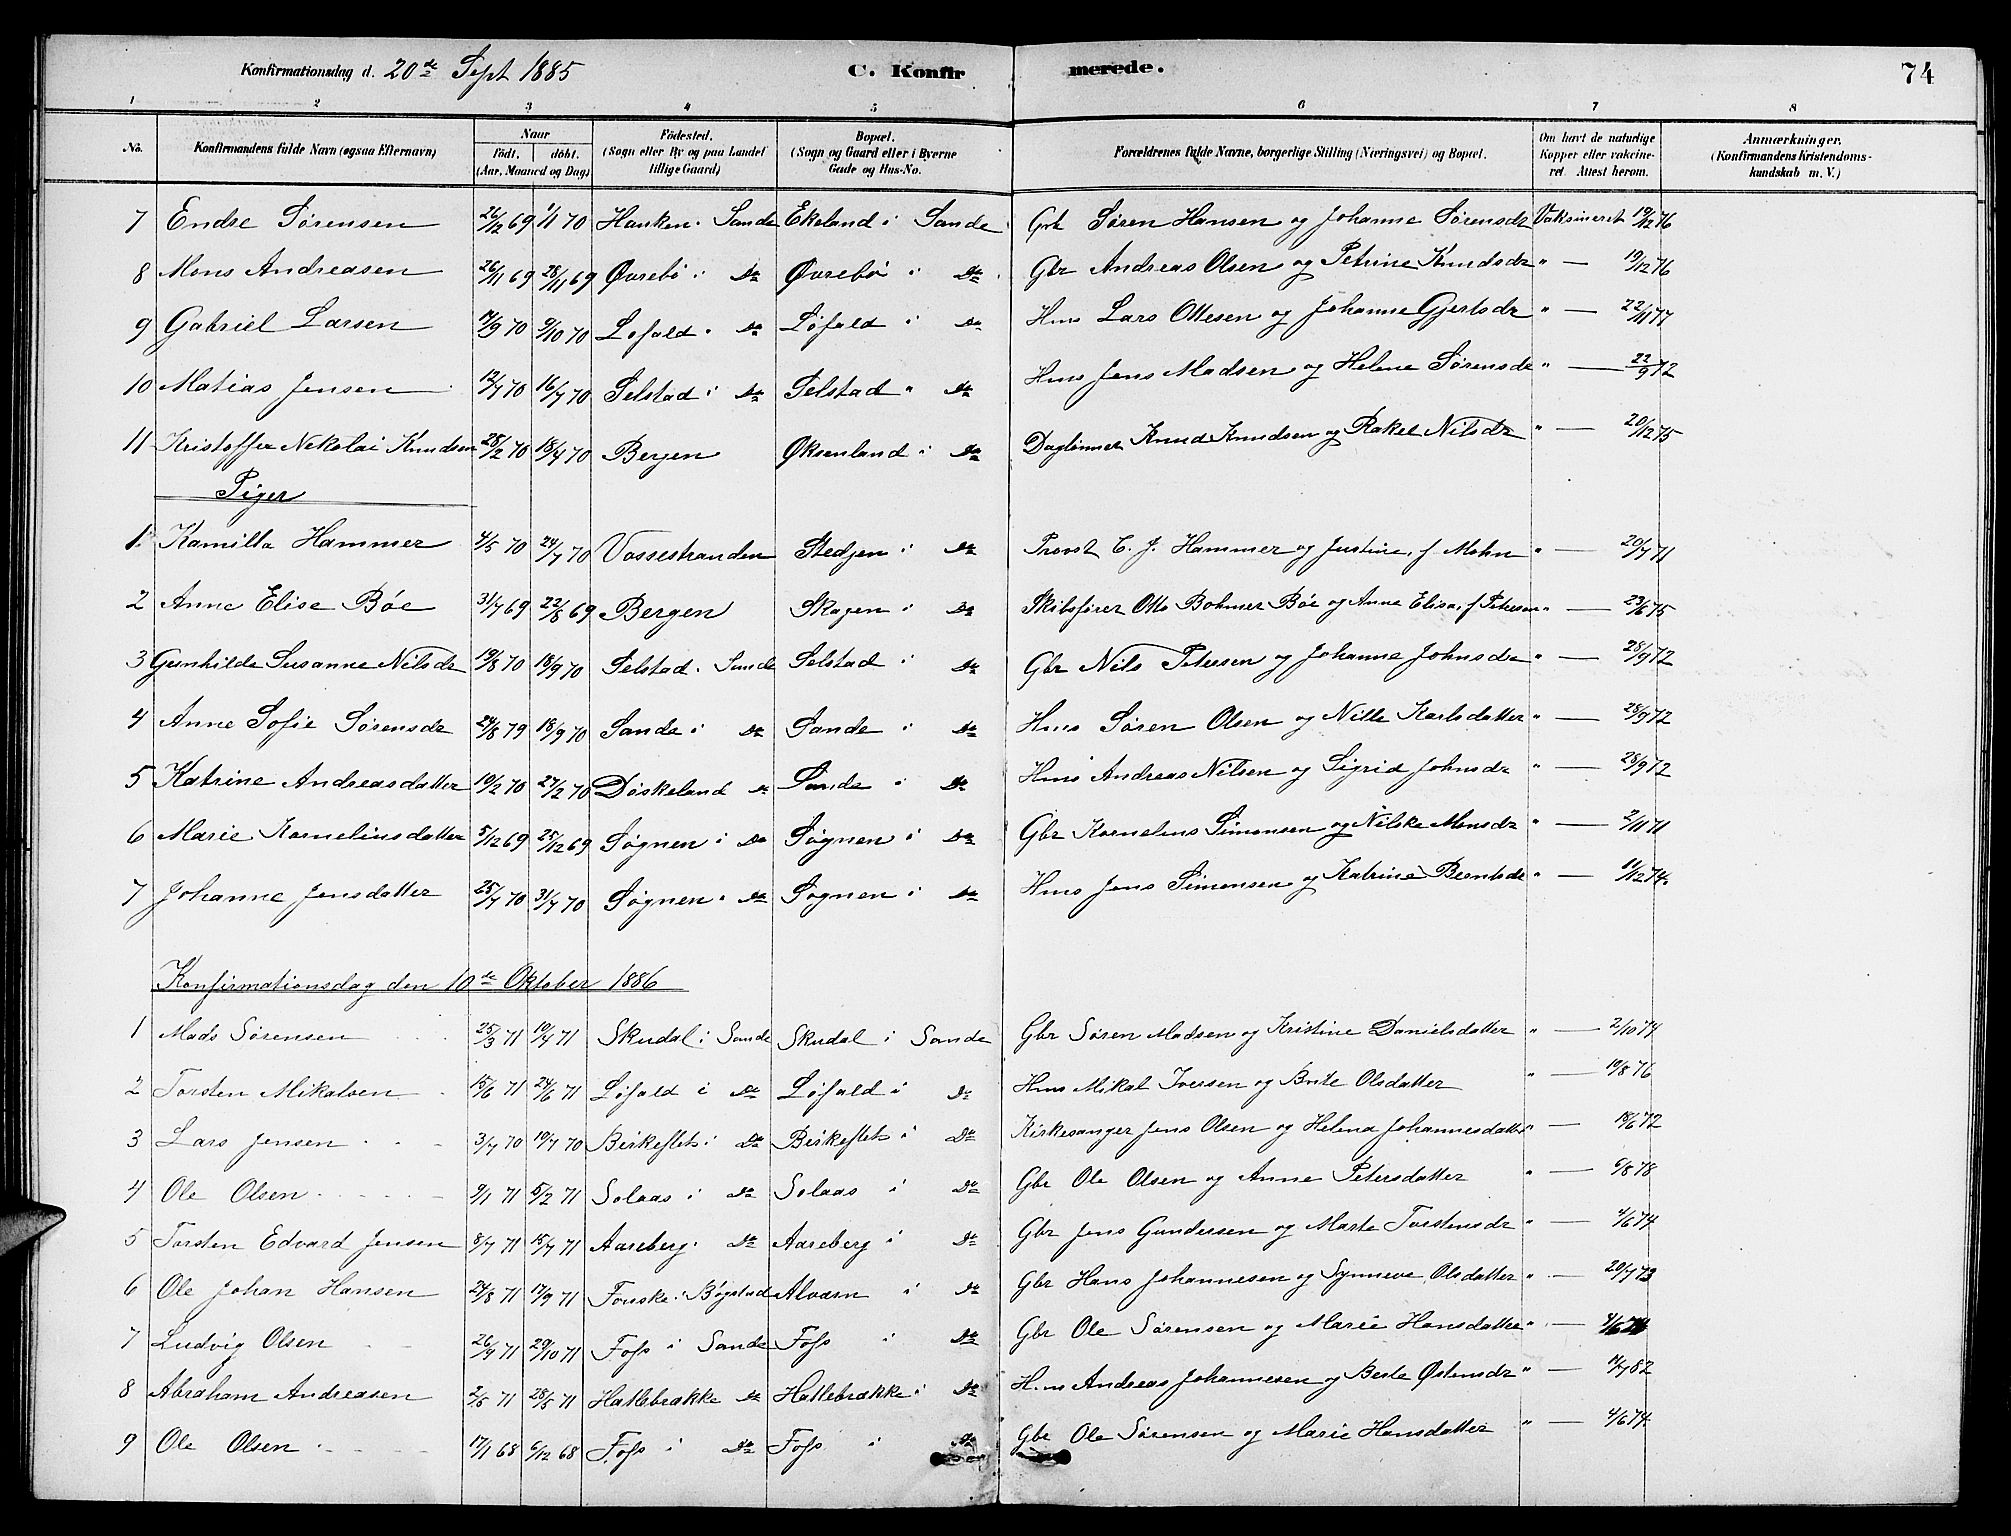 Konfirmationsdag d. 20de Sept 1885 C. Konfir merede. 74
1 2 3 4 5 6 7 8
No. Konfirmandens fulde Navn (ogsaa Efternavn) Naar Födt. döbt. (Aar, Maaned og Dag) Födested. (Sogn eller By og paa Landet tillige Gaard) Bopæl. (Sogn og Gaard eller i Byerne Gade og Hus-No. Forældrenes fulde Navne, borgerlige Stilling (Næringsvei) og Bopæl. Om havt de naturlige Kopper eller vakcineret. Attest herom. Anmærkninger. (Konfirmandens Kristendomskundskab m. V.)
7 Endre Sørensen 26/12 69 1/1 70 Hauken i Sande Ekeland i Sande Gbr Søren Hansen og Johanne Sørensdr Vaksineret 19/12 76
8 Mons Andreasen 26/11 69 28/11 69 Øvrebö i Do Øvrebö i Do Gbr Andreas Olsen og Petrine Knudsdr " — 19/12 76
9 Gabriel Larsen 7/9 70 9/10 70 Lofald i Do Løfald i Do Hms Lars Ottesen og Johanne Gjertsdr " — 22/11 77
10 Matias Jensen 12/7 70 16/7 70 Selstad i Do Selstad " Do Hms Jens Madsen og Helene Sørensdr " — 22/9 72
11 Kristoffer Nekolai Knudsen 28/2 70 18/4 70 Bergen Øksenland i Do Daglönner Knud Knudsen og Rakel Nilsdr " — 20/12 75
Piger
1. Kamilla Hammer 4/5 70 24/7 70 Vossestranden Stedjen i Do Provst C. J. Hammer og Justine, f Mohn " — 20/7 71
2 Anne Elise Böe 31/7 69 22/8 69 Bergen Skagen i Do Skibsfører Otto Bohmer Böe og Anne Elisa, f Petersen " — 23/6 75
3 Gunhilde Susanne Nilsdr 19/8 70 18/9 70 Selstad i Sande Selstad i Do Gbr Nils Petersen og Johanne Johnsdr " — 28/9 72
4 Anne Sofie Sørensdr 24/8 79 18/9 70 Sande i Do Sande i Do Hms Søren Olsen og Nille Karlsdatter " — 28/9 72
5 Katrine Andreasdatter 19/2 70 27/2 70 Döskeland Do Sande i Do Hms Andreas Nilsen og Sigrid Johnsdr " — 28/9 72
6 Marie Kornelinsdatter 5/12 69 25/12 69 Søgnen i Do Søgnen i Do Gbr Kornelius Simonsen og Nilske Monsdr " — 2/11 71
7 Johanne Jensdatter 25/7 70 31/7 70 Søgnen i Do Søgnen i Do Hms Jens Simonsen og Katrine Berntsdr " — 11/12 74.
Konfirmationsdag den 10de Oktober 1886
1 Mads Sørensen 25/3 71 10/4 71 Skudal i Sande Skudal i Sande Gbr Søren Madsen og Kristine Danielsdatter " — 2/10 74
2 Torsten Mikalsen 15/6 71 24/6 71 Løfald i Do Løfald i Do Hms Mikal Iversen og Brite Olsdatter " — 19/8 76
3 Lars Jensen 3/7 70 10/7 70 Birkeflet i Do Birkeflet i Do Kirkesanger Jens Olsen og Helena Johannesdatter " — 18/6 72
4 Ole Olsen 9/1 71 5/2 71 Solaas i Do Solaas i Do Gbr Ole Olsen og Anne Petersdatter " — 6/8 78
5 Torsten Edvard Jensen 8/7 71 15/7 71 Aareberg i Do Aareberg i Do Gbr Jens Gundersen og Marte Torstensdr " — 4/6 74
6 Ole Johan Hansen 24/8 71 17/9 71 i Bögstad i Do Gbr Hans Johannesen og Synneve Olsdatter " — 20/7 73
7 Ludvig Olsen 26/9 71 29/10 71 Foss i Sande Foss i Do Gbr Ole Sørensen og Marie Hansdatter " — 4/6 74
8 Abraham Andreasen 2/5 71 28/5 71 Hatlebrække Do Hatlebrække i Do Hms Andreas Johannesen og Berte Østensdr " — 82
9 Ole Olsen 17/1 68 6/12 68 Foss i Do Foss i Do Gbr Ole Sørensen og Marie Hansdatter " — 4/6 74